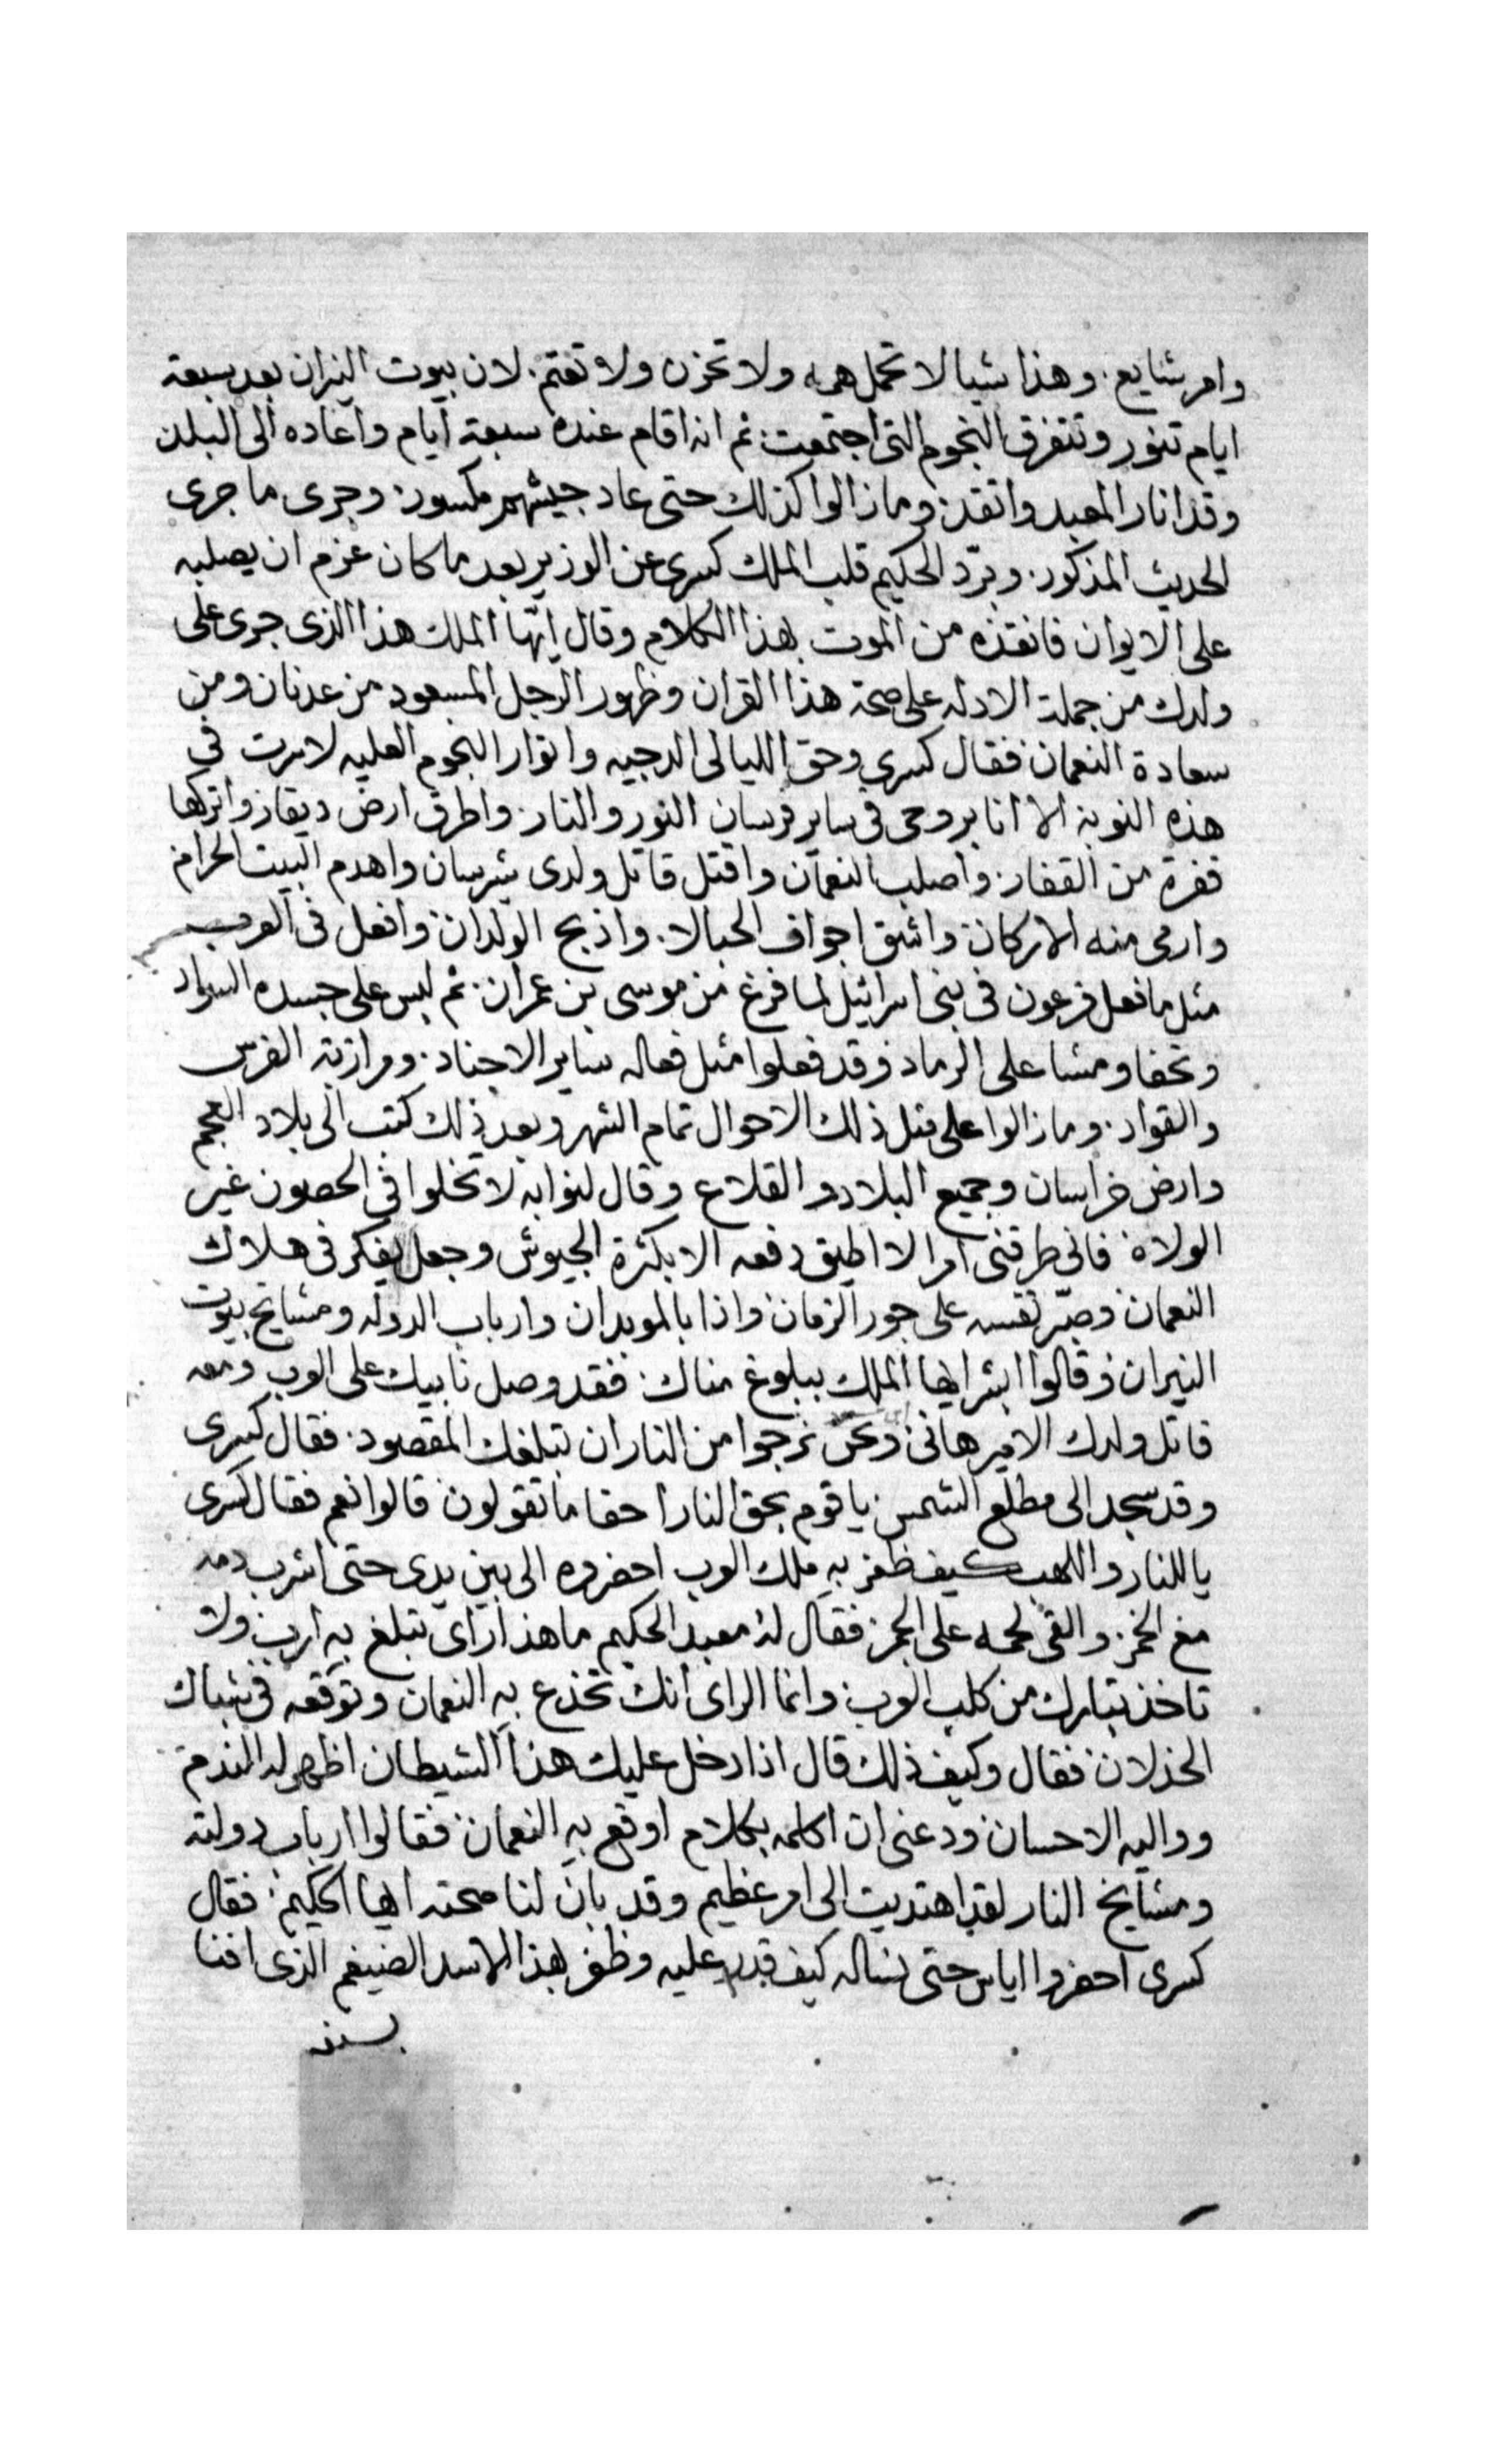 وامر شايع. وهذا شيا لا تحمل همه ولا تحزن ولا تغتم. لان بيوت النيران بعد سبعة
ايام تنور وتتفرق النجوم التى اجتمعت. ثم انه اقام عنده سبعة ايام واعاده الى البلد
وقد انار المعبد واتقد. وما زالوا كذلك حتى عاد جيشهم مكسور. وجرى ما جرى
الحديث المذكور. وبرّد الحكيم قلب الملك كسرى عن الوزير بعد ما كان عزم ان يصلبه
على الايوان فانقذه من الموت بهذا الكلام وقال ايها الملك هذا الذى جرى على
ولدك من جملة الادله على صحة هذا القران وظهور الرجل المسعود من عدنان ومن
سعادة النعمان فقال كسرى وحق الليالى الدجيه وانوار النجوم العليه لا سرت فى
هذه النوبة الا انا بروحى فى ساير فرسان النور والنار. واطرق ارض ذيقار واتركها
قفرة من القفار. واصلب النعمان واقتل قاتل ولدى شرسان واهدم البيت الحرام
وارمى منه الاركان واشق اجواف الحبالا. واذبح الولدان وافعل فى العرب
مثل ما فعل فرعون فى بنى اسرائيل لما فرغ من موسى بن عمران. ثم لبس على جسده السواد
وتحفا ومشا على الرماد وقد فعلوا مثل فعاله ساير الاجناد. ومرازبة الفرس
والقواد. وما زالوا على مثل ذلك الاحوال تمام الشهر وبعد ذلك كتب الى بلاد العجم
وارض خراسان وجميع البلاد والقلاع وقال لنوابه لا تخلوا فى الحصون غير
الولاة فانى طرقنى امرا لا اطيق دفعه الا بكثرة الجيوش وجعل يفكر فى هلاك
النعمان وصبّر نفسه على جور الزمان واذا بالموبدان وارباب الدوله ومشايخ بيوت
النيران وقالوا ابشر ايها الملك ببلوغ مناك. فقد وصل نايبك على العرب ومعه
قاتل ولدك الامير هانى ونحن نرجوا من النار ان تبلغك المقصود. فقال كسرى
وقد سجد الى مطلع الشمس يا قوم بحق النار احقا ما تقولون قالوا نعم فقال كسرى
يا للنار واللهب كيف ظفر به ملك العرب احضروه الى بين يدى حتى اشرب دمه
مع الخمر. والقى لحمه على الجمر فقال له معبد الحكيم ما هذا راى تبلغ به ارب ولا
تاخذ بتارك من كلب العرب وانما الراى انك تخدع به النعمان وتوقعه فى شباك
الخذلان فقال وكيف ذلك قال اذا دخل عليك هذا الشيطان اظهر له الندم
وواليه الاحسان ودعنى ان اكلمه بكلام اوقع به النعمان فقالوا ارباب دولته
ومشايخ النار لقد اهتديت الى امر عظيم وقد بان لنا صحته ايها الحكيم. فقال
كسرى احضروا اياس حتى نساله كيف قدر عليه وظفر بهذا الاسد الضيغم الذى افنا
بسيفه